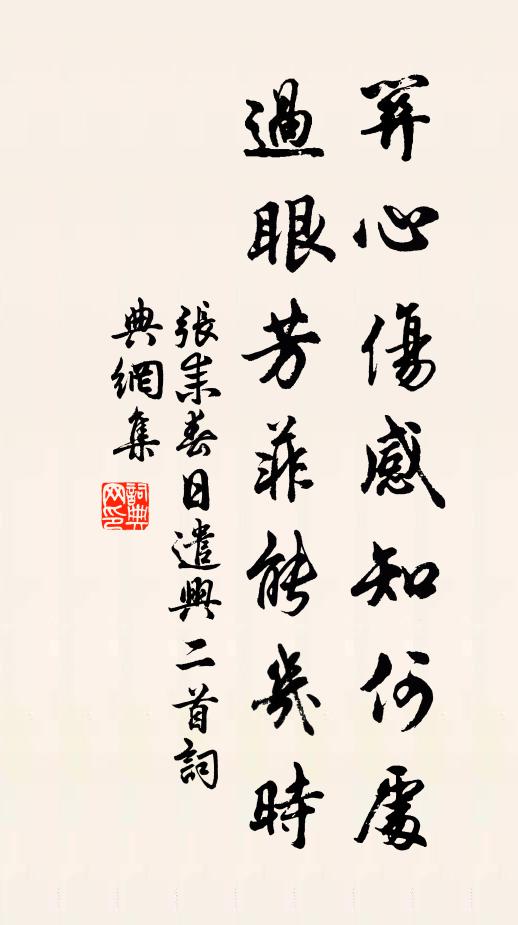 算心傷感知何處
過眼芳菲能幾時
張耒春日遣興二首詞
典網集
詞典
网印